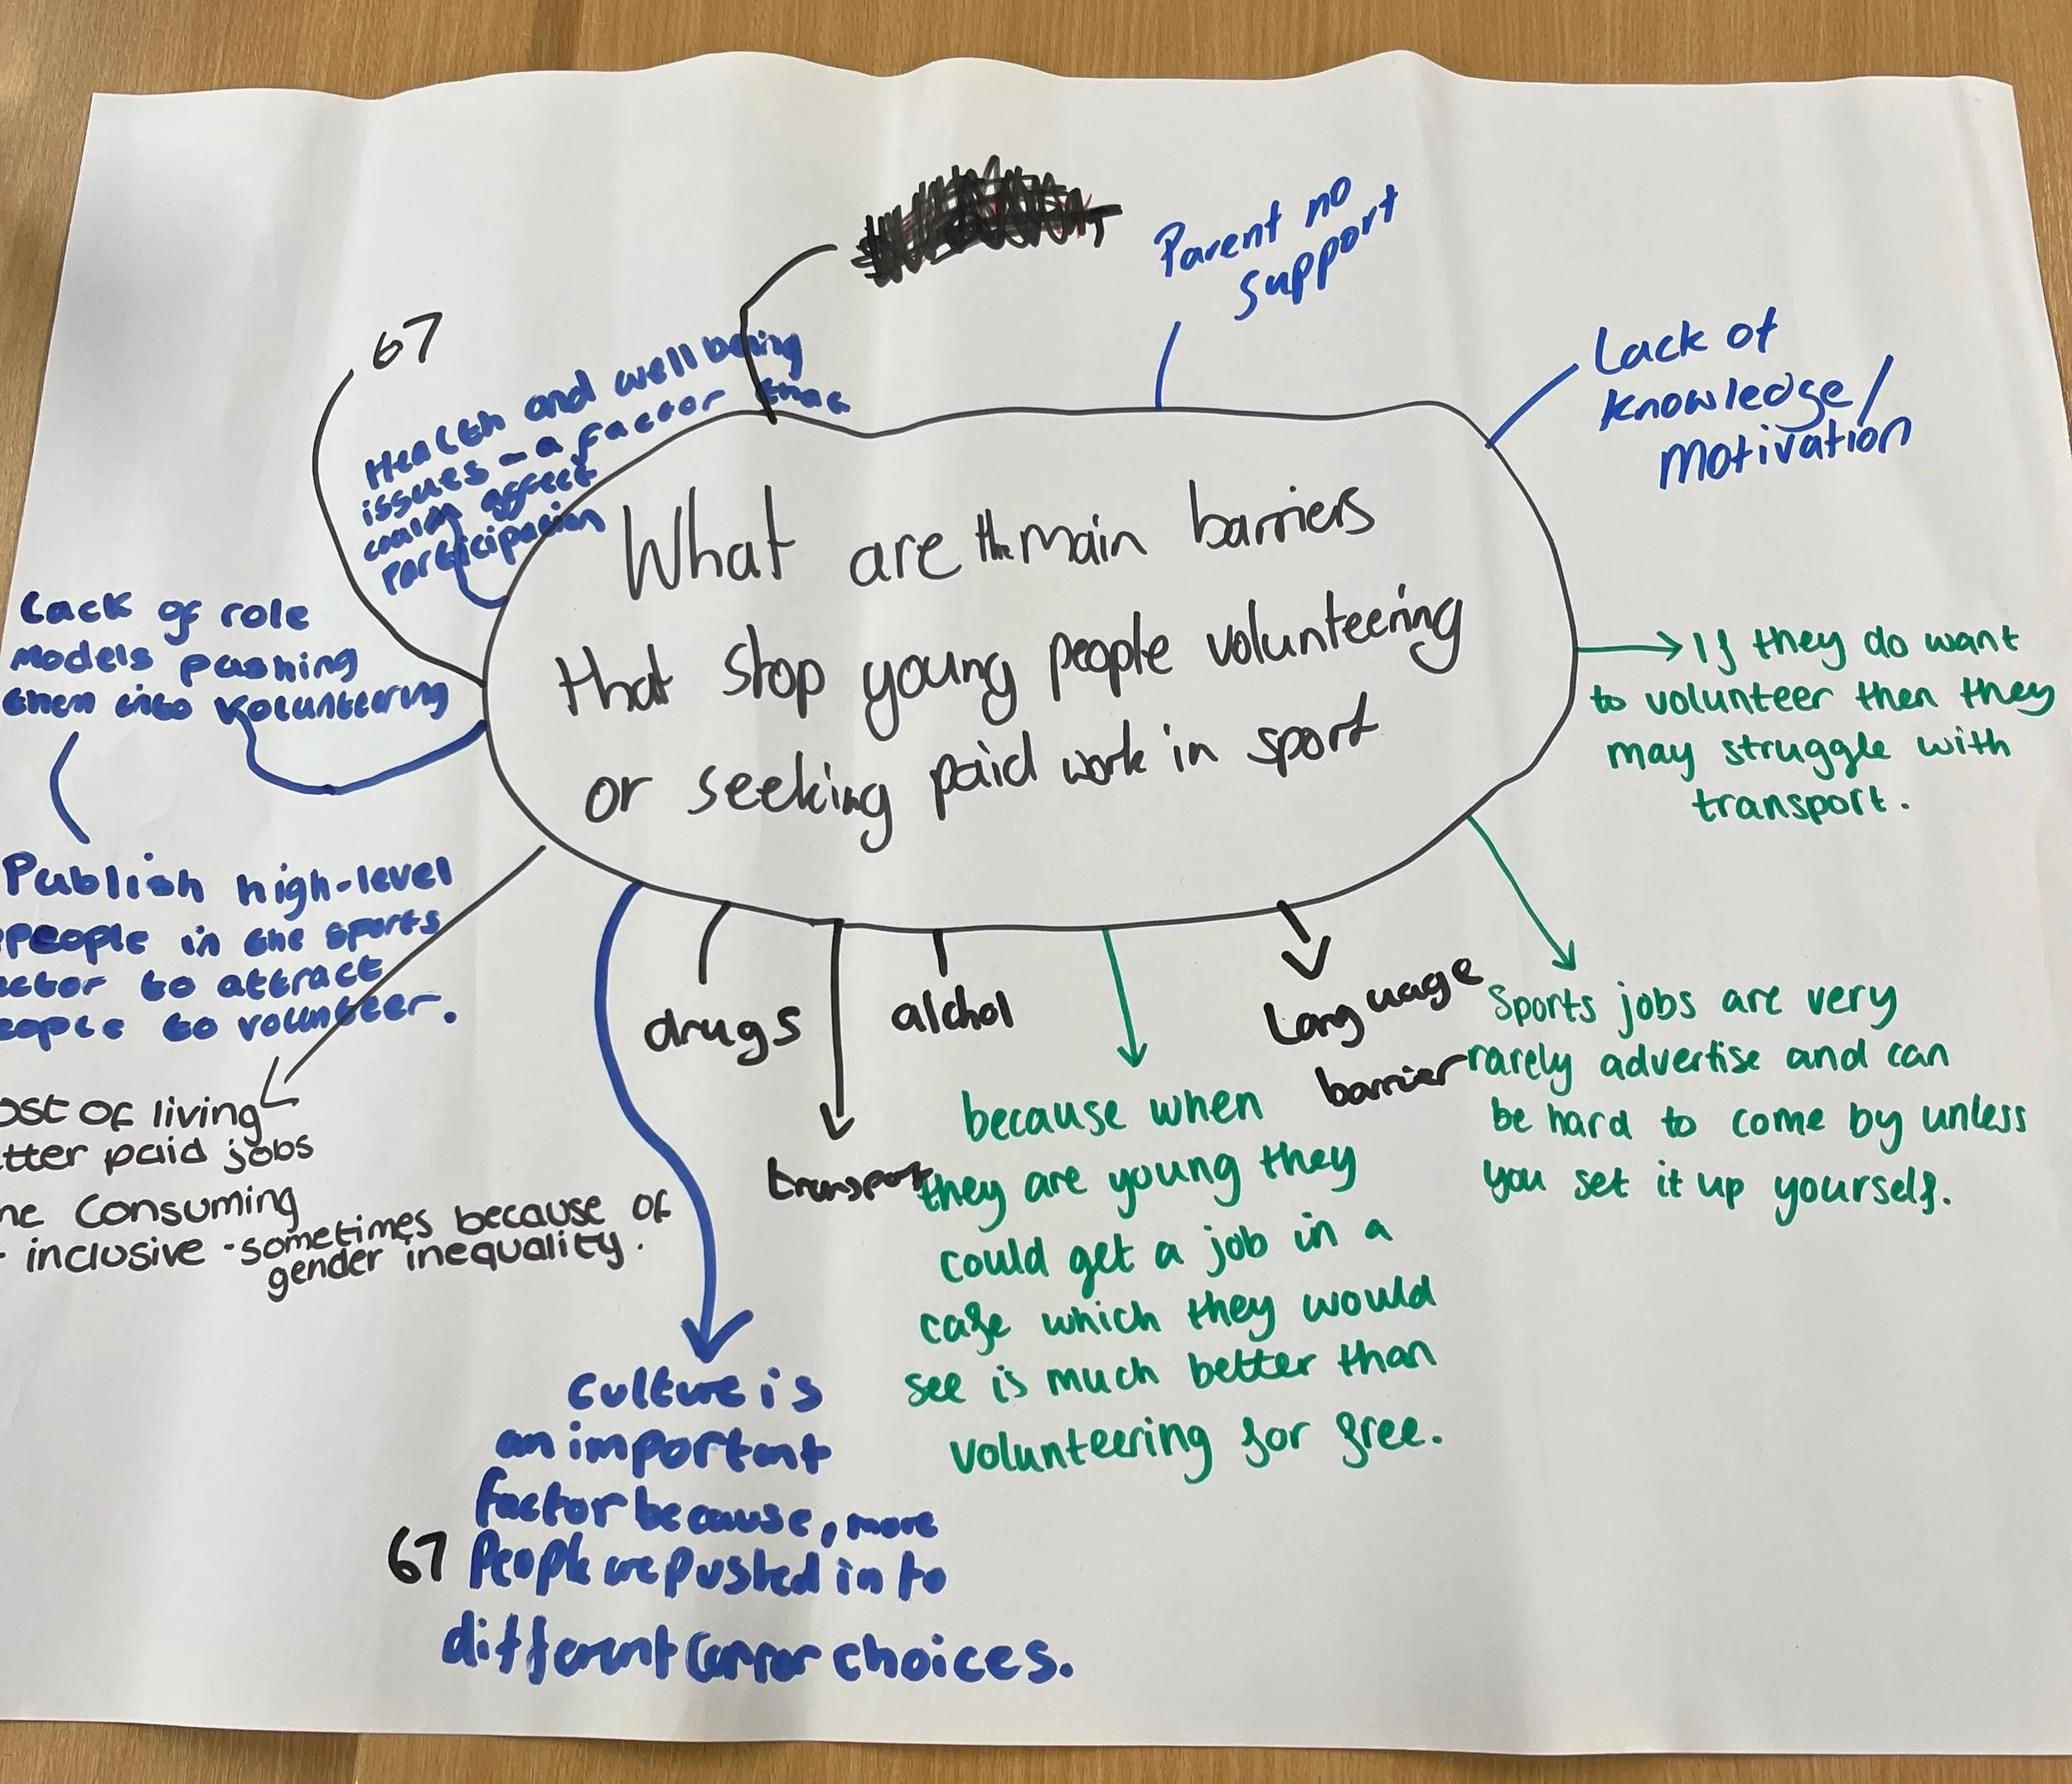 What are the main barriers
that stop young people volunteering
or seeking paid work in sport
Parent no
support
Lack of
knowledge/
Motivation
If they do want
to volunteer then they
may struggle with
transport.
Sports jobs are very
rarely advertise and can
be hard to come by unless
you set it up yourself.
Language
barrier
because when
they are young they
could get a job in a
cafe which they would
see is much better than
volunteering for free.
alchol
transport
drugs
Culture is
an important
factor because, more
People are pushed in to
different career choices.
67
ost of living
tter paid jobs
ne consuming
inclusive - sometimes because of
gender inequality.
Lack of role
models pushing
them into volunteering
Publish high-level
people in the sports
ctor to attract
eople to volunteer.
67
Health and well being
issues - a factor that
could affect
participation